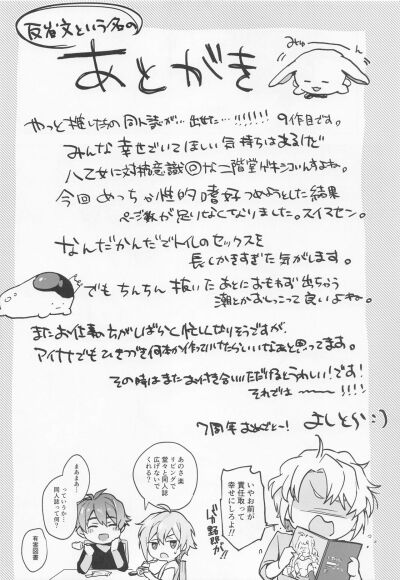 反省文という名の
あとがき
みゅーん
やっと推したちの同人誌が…出せた…!!!!!! 9作目です。
みんな幸せでいてほしい気持ちはあるけど
八乙女に対抗意識◎な二階堂がキンコいんすよね。
今回 めっちゃ性的嗜好つめようとした結果
ページ数が足りなくなりました。スイマセン。
なんだかんだでトイレのセックスを
長くかきすぎた気がします。
でも ちんちん 抜いた あとに おもわず 出ちゃう
潮とかおしっこって良いよね。
またお仕事の方がしばらく忙しくなりそうですが、
アイナナでもひきつづき何本か作っていけたらいいなあと思ってます。
その時はまたお付き合いいただけるとうれしい!です!
それでは 〜 !!!!
7周年おめでとー!
よしとら:)
いやお前が
責任取って
幸せにしろよ!!
バカ野郎が!!
あのさ楽
リビングで
堂々と同人誌
広げないで
くれる?
まあまあ…
っていうか…
同人誌って何?
有害図書